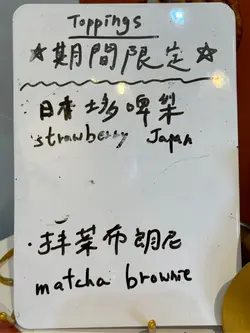 Toppings
☆期間限定☆
日本士多啤梨
strawberry Japan
·抹茶布朗尼
matcha brownie